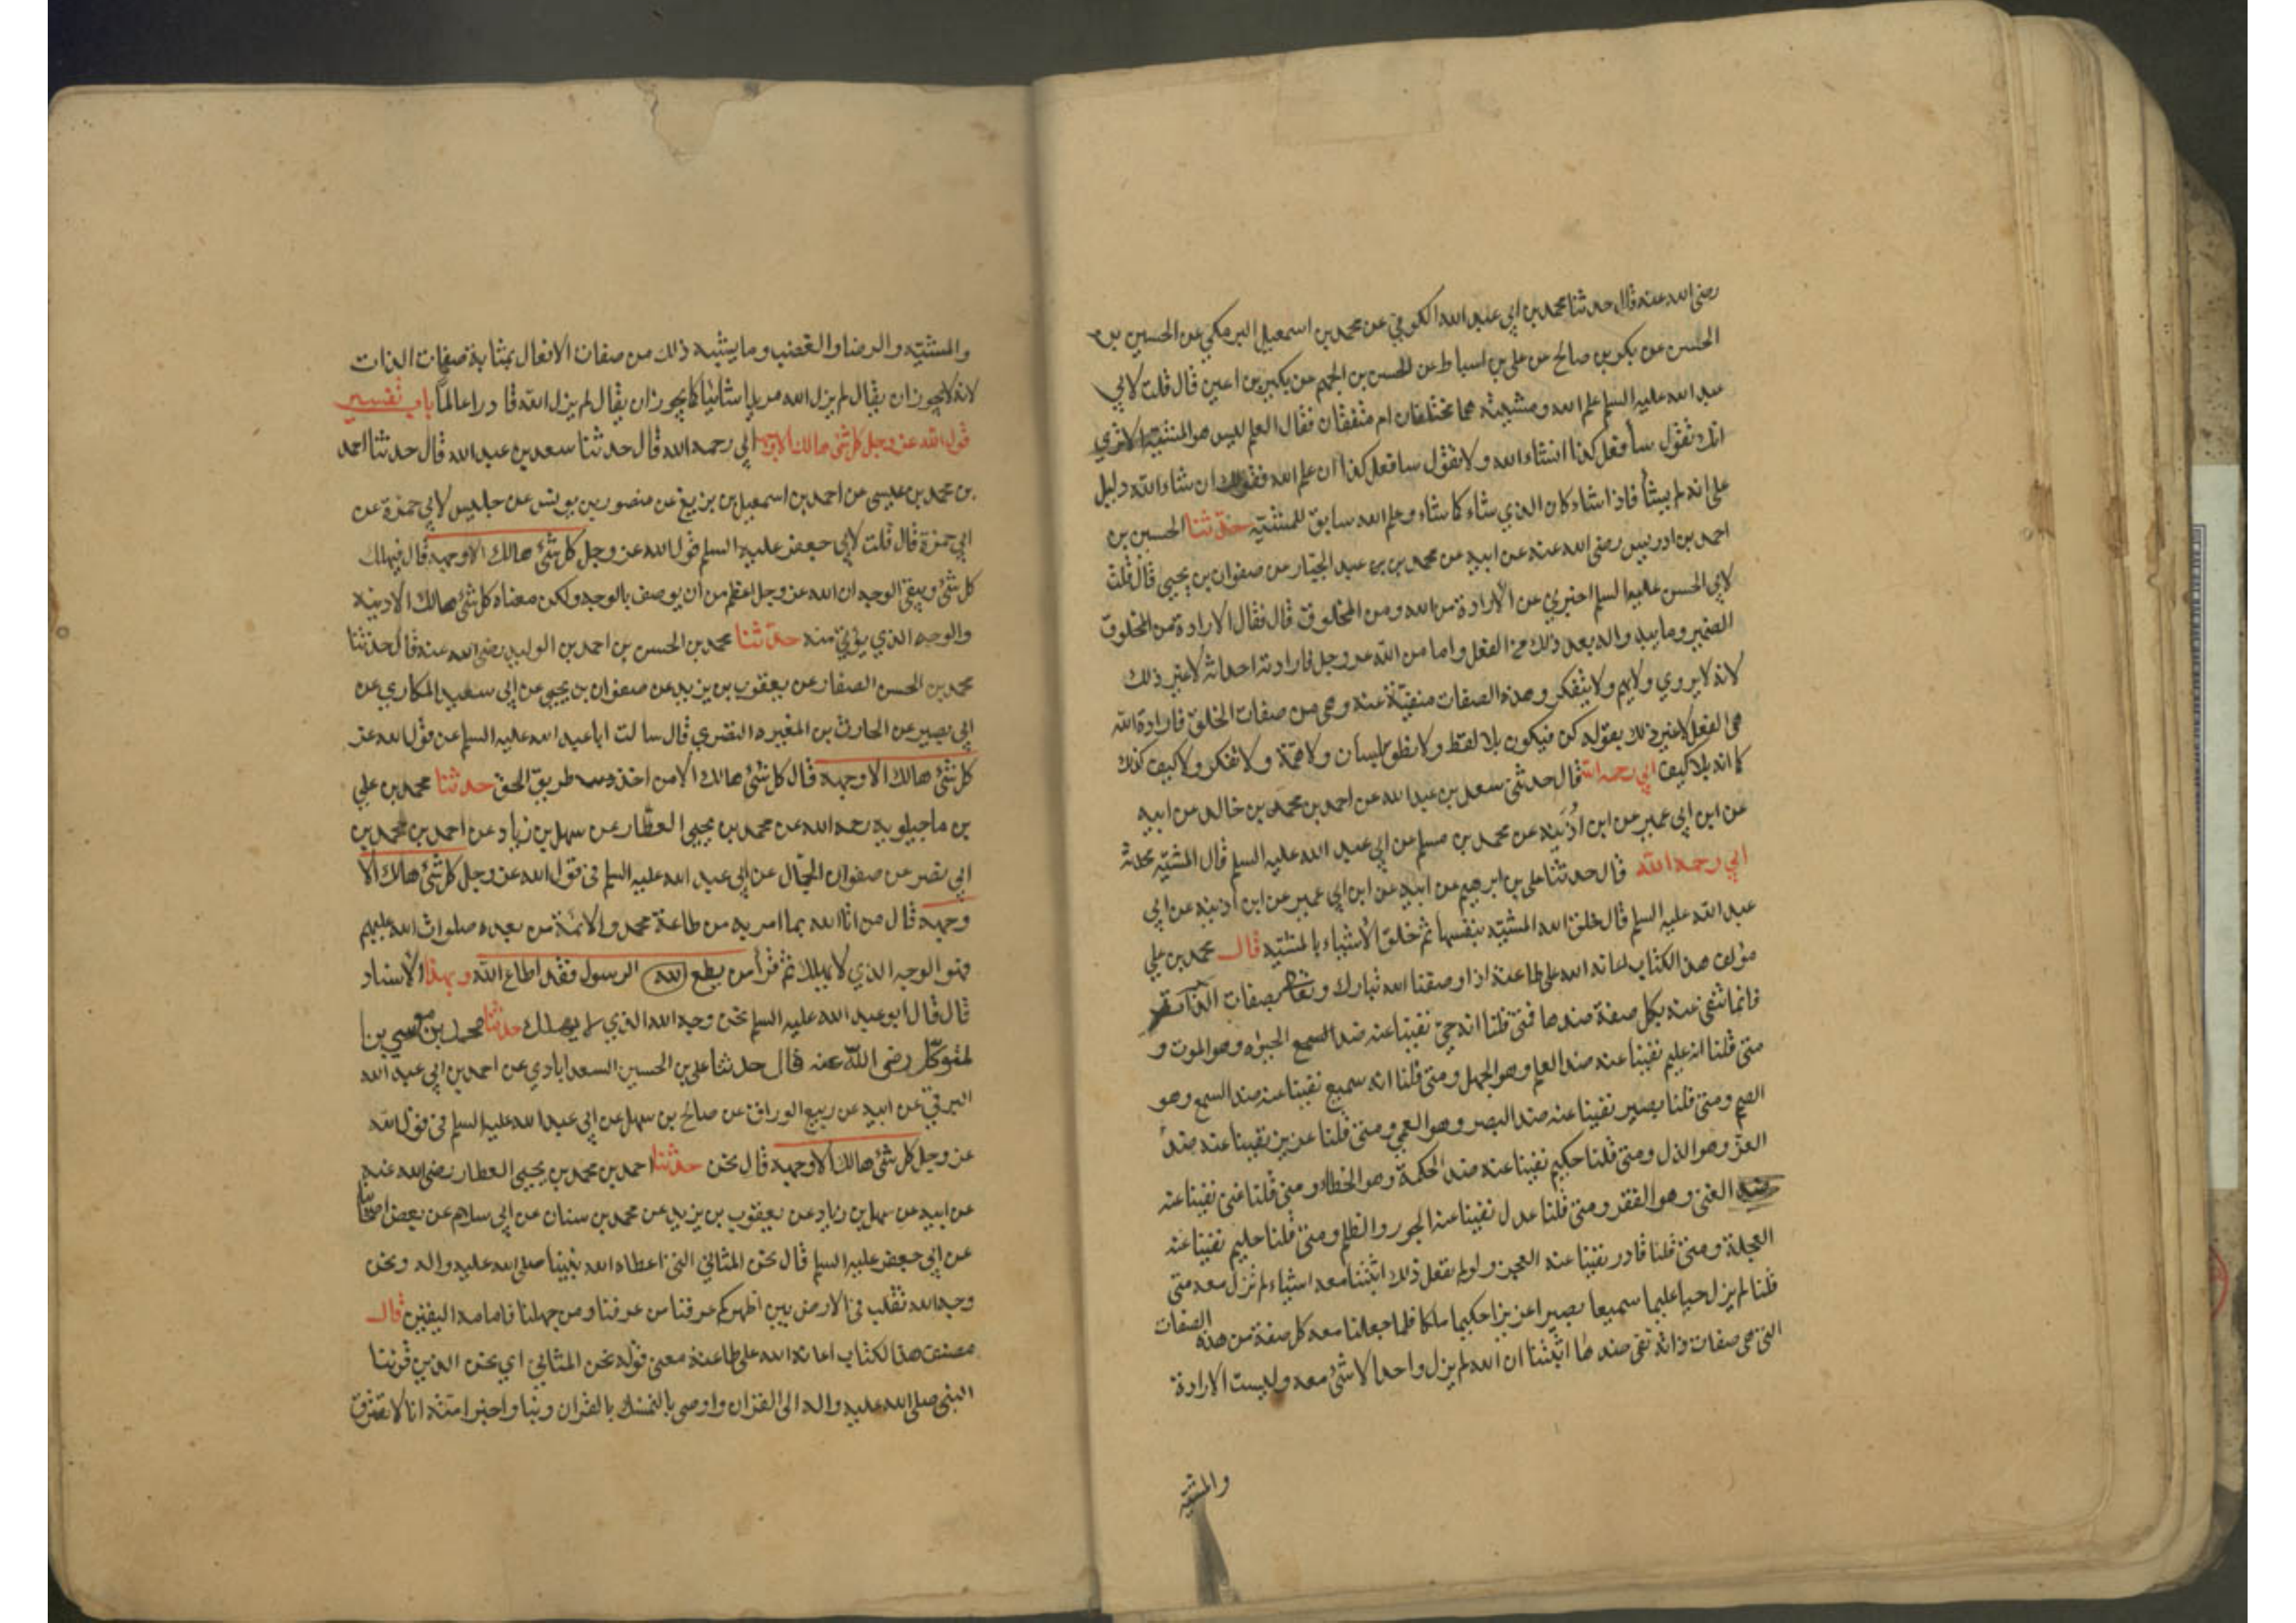 رضي الله عنه قال حدثنا محمد بن ابي عبد الله الكوفي عن محمد بن اسمعيل البرمكي عن الحسين بن
الحسن عن بكر بن صالح عن علي بن اسباط عن الحسن بن الجهم عن بكير بن اعين قال قلت لابي
عبد الله عليه السلم علم الله ومشيته هما مختلفان ام متفقان فقال العلم ليس هو المشيّة الا تري
انك تقول سأفعل كذا انشاء الله ولا تقول سافعل كذا ان علم الله فقولك ان شاء الله دليل
على انه لم يشأ فاذا شاء كان الذي شاء كما شاء وعلم الله سابق للمشيّة حدّثنا الحسين بن
احمد بن ادريس رضي الله عنه عن ابيه عن محمد بن عبد الجبّار عن صفوان بن يحيى قال قلت
لابي الحسن عليه السلم اخبرني عن الارادة من الله ومن المخلوق قال فقال الارادة من المخلوق
الضمير وما يبدو له بعد ذلك من الفعل واما من الله عز وجل فارادته احداثه لا غير ذلك
لانه لا يروي ولا يهم ولا يتفكر وهذه الصفات منفيّة عنه وهي من صفات الخلق فارادة الله
هي الفعل لا غير ذلك يقول له كن فيكون بلا لفظ ولا نطق بلسان ولا همّة ولا تفكر ولا كيف كذلك
كما انه بلا كيف ابي رحمه الله قال حدثني سعد بن عبد الله عن احمد بن محمد بن خالد عن ابيه
عن ابن ابي عمير عن ابن اذينه عن محمد بن مسلم عن ابي عبد الله عليه السلم قال المشيّه محدثة
ابي رحمه الله قال حدثنا علي بن ابرهيم عن ابيه عن ابن ابي عمير عن ابن اذينه عن ابي
عبد الله عليه السلم قال خلق الله المشيّه بنفسها ثم خلق الاشياء بالمشيّه قال محمد بن علي
مؤلف هذا الكتاب اعانه الله على طاعته اذا وصفنا الله تبارك وتعالى بصفات الذات
فانما ننفي عنه بكل صفة منها ضدها فمتى قلنا انه حيّ نفينا عنه ضد الحيوة وهو الموت و
متى قلنا انه عليم نفينا عنه ضد العلم وهو الجهل ومتى قلنا انه سميع نفينا عنه ضد السمع وهو
الصمم ومتى قلنا بصير نفينا عنه ضد البصر وهو العمي ومتى قلنا عزيز نفينا عنه ضدّ
العزّ وهو الذل ومتى قلنا حكيم نفينا عنه ضد الحكمة وهو الخطاء ومتى قلنا غني نفينا عنه
ضد الغنى وهو الفقر ومتى قلنا عدل نفينا عنه الجور والظلم ومتى قلنا حليم نفينا عنه
العجلة ومتى قلنا قادر نفينا عنه العجز ولو لم نفعل ذلك اثبتنا معه اشياء لم تزل معه متى
قلنا لم يزل حيا عليما سميعا بصيرا عزيزا حكيما ملكا فلما جعلنا معه كل صفة من هذه الصفات
التي هي صفات ذاته نفي ضدها اثبتنا ان الله لم يزل واحدا لا شئ معه وليست الارادة
والمشيّة
والمشيّه والرضا والغضب وما يشبه ذلك من صفات الافعال بمثابة صفات الذات
لانه لا يجوز ان يقال لم يزل الله مريدا شائيا كما يجوز ان يقال لم يزل الله قادرا عالماً باب تفسير
قول الله عز وجل كل شئ هالك الا وجهه ابي رحمه الله قال حدثنا سعد بن عبد الله قال حدثنا احمد
بن محمد بن عيسى عن احمد بن اسمعيل بن بزيع عن منصور بن يونس عن جليس لابي حمزة عن
ابي حمزة قال قلت لابي جعفر عليه السلم قول الله عز وجل كل شئ هالك الا وجهه قال فيهلك
كل شئ ويبقى الوجه ان الله عز وجل اعظم من ان يوصف بالوجه ولكن معناه كل شئ هالك الا دينه
والوجه الذي يؤتى منه حدّثنا محمد بن الحسن بن احمد بن الوليد رضي الله عنه قال حدثنا
محمد بن الحسن الصفار عن يعقوب بن يزيد عن صفوان بن يحيى عن ابي سعيد المكاري عن
ابي بصير عن الحارث بن المغيره النضري قال سالت ابا عبد الله عليه السلم عن قول الله عز
كل شئ هالك الا وجهه قال كل شئ هالك الا من اخذ طريق الحق حدثنا محمد بن علي
بن ماجيلويه رحمه الله عن محمد بن يحيى العطّار عن سهل بن زياد عن احمد بن محمد بن
ابي نصر عن صفوان الجمّال عن ابي عبد الله عليه السلم في قول الله عز وجل كل شئ هالك الا
وجهه قال من اتا الله بما امر به من طاعة محمد والائمة من بعده صلوات الله عليهم
فهو الوجه الذي لا يهلك ثم قرأ من يطع الله الرسول فقد اطاع الله وبهذا الاسناد
قال قال ابو عبد الله عليه السلم نحن وجه الله الذي لا يهلك حدثنا محمد بن موسى بن
لمتوكّل رضي الله عنه قال حدثنا علي بن الحسين السعدابادي عن احمد بن ابي عبد الله
البرقي عن ابيه عن ربيع الوراق عن صالح بن سهل عن ابي عبد الله عليه السلم في قول الله
عز وجل كل شئ هالك الا وجهه قال نحن حدثنا احمد بن محمد بن يحيى العطار رضي الله عنه
عن ابيه عن سهل بن زياد عن يعقوب بن يزيد عن محمد بن سنان عن ابي سلام عن بعض اصحابنا
عن ابي جعفر عليه السلم قال نحن المثاني التي اعطاه الله نبينا صلى الله عليه واله ونحن
وجه الله نتقلب في الارض بين اظهركم عرفنا من عرفنا ومن جهلنا فامامه اليقين قال
مصنف هذا لكتاب اعانه الله على طاعته معنى قوله نحن المثاني اي نحن الذين قرننا
النبي صلى الله عليه واله الى القران واوصى بالتمسك بالقران وبنا واخبر امته انا لا نفترق